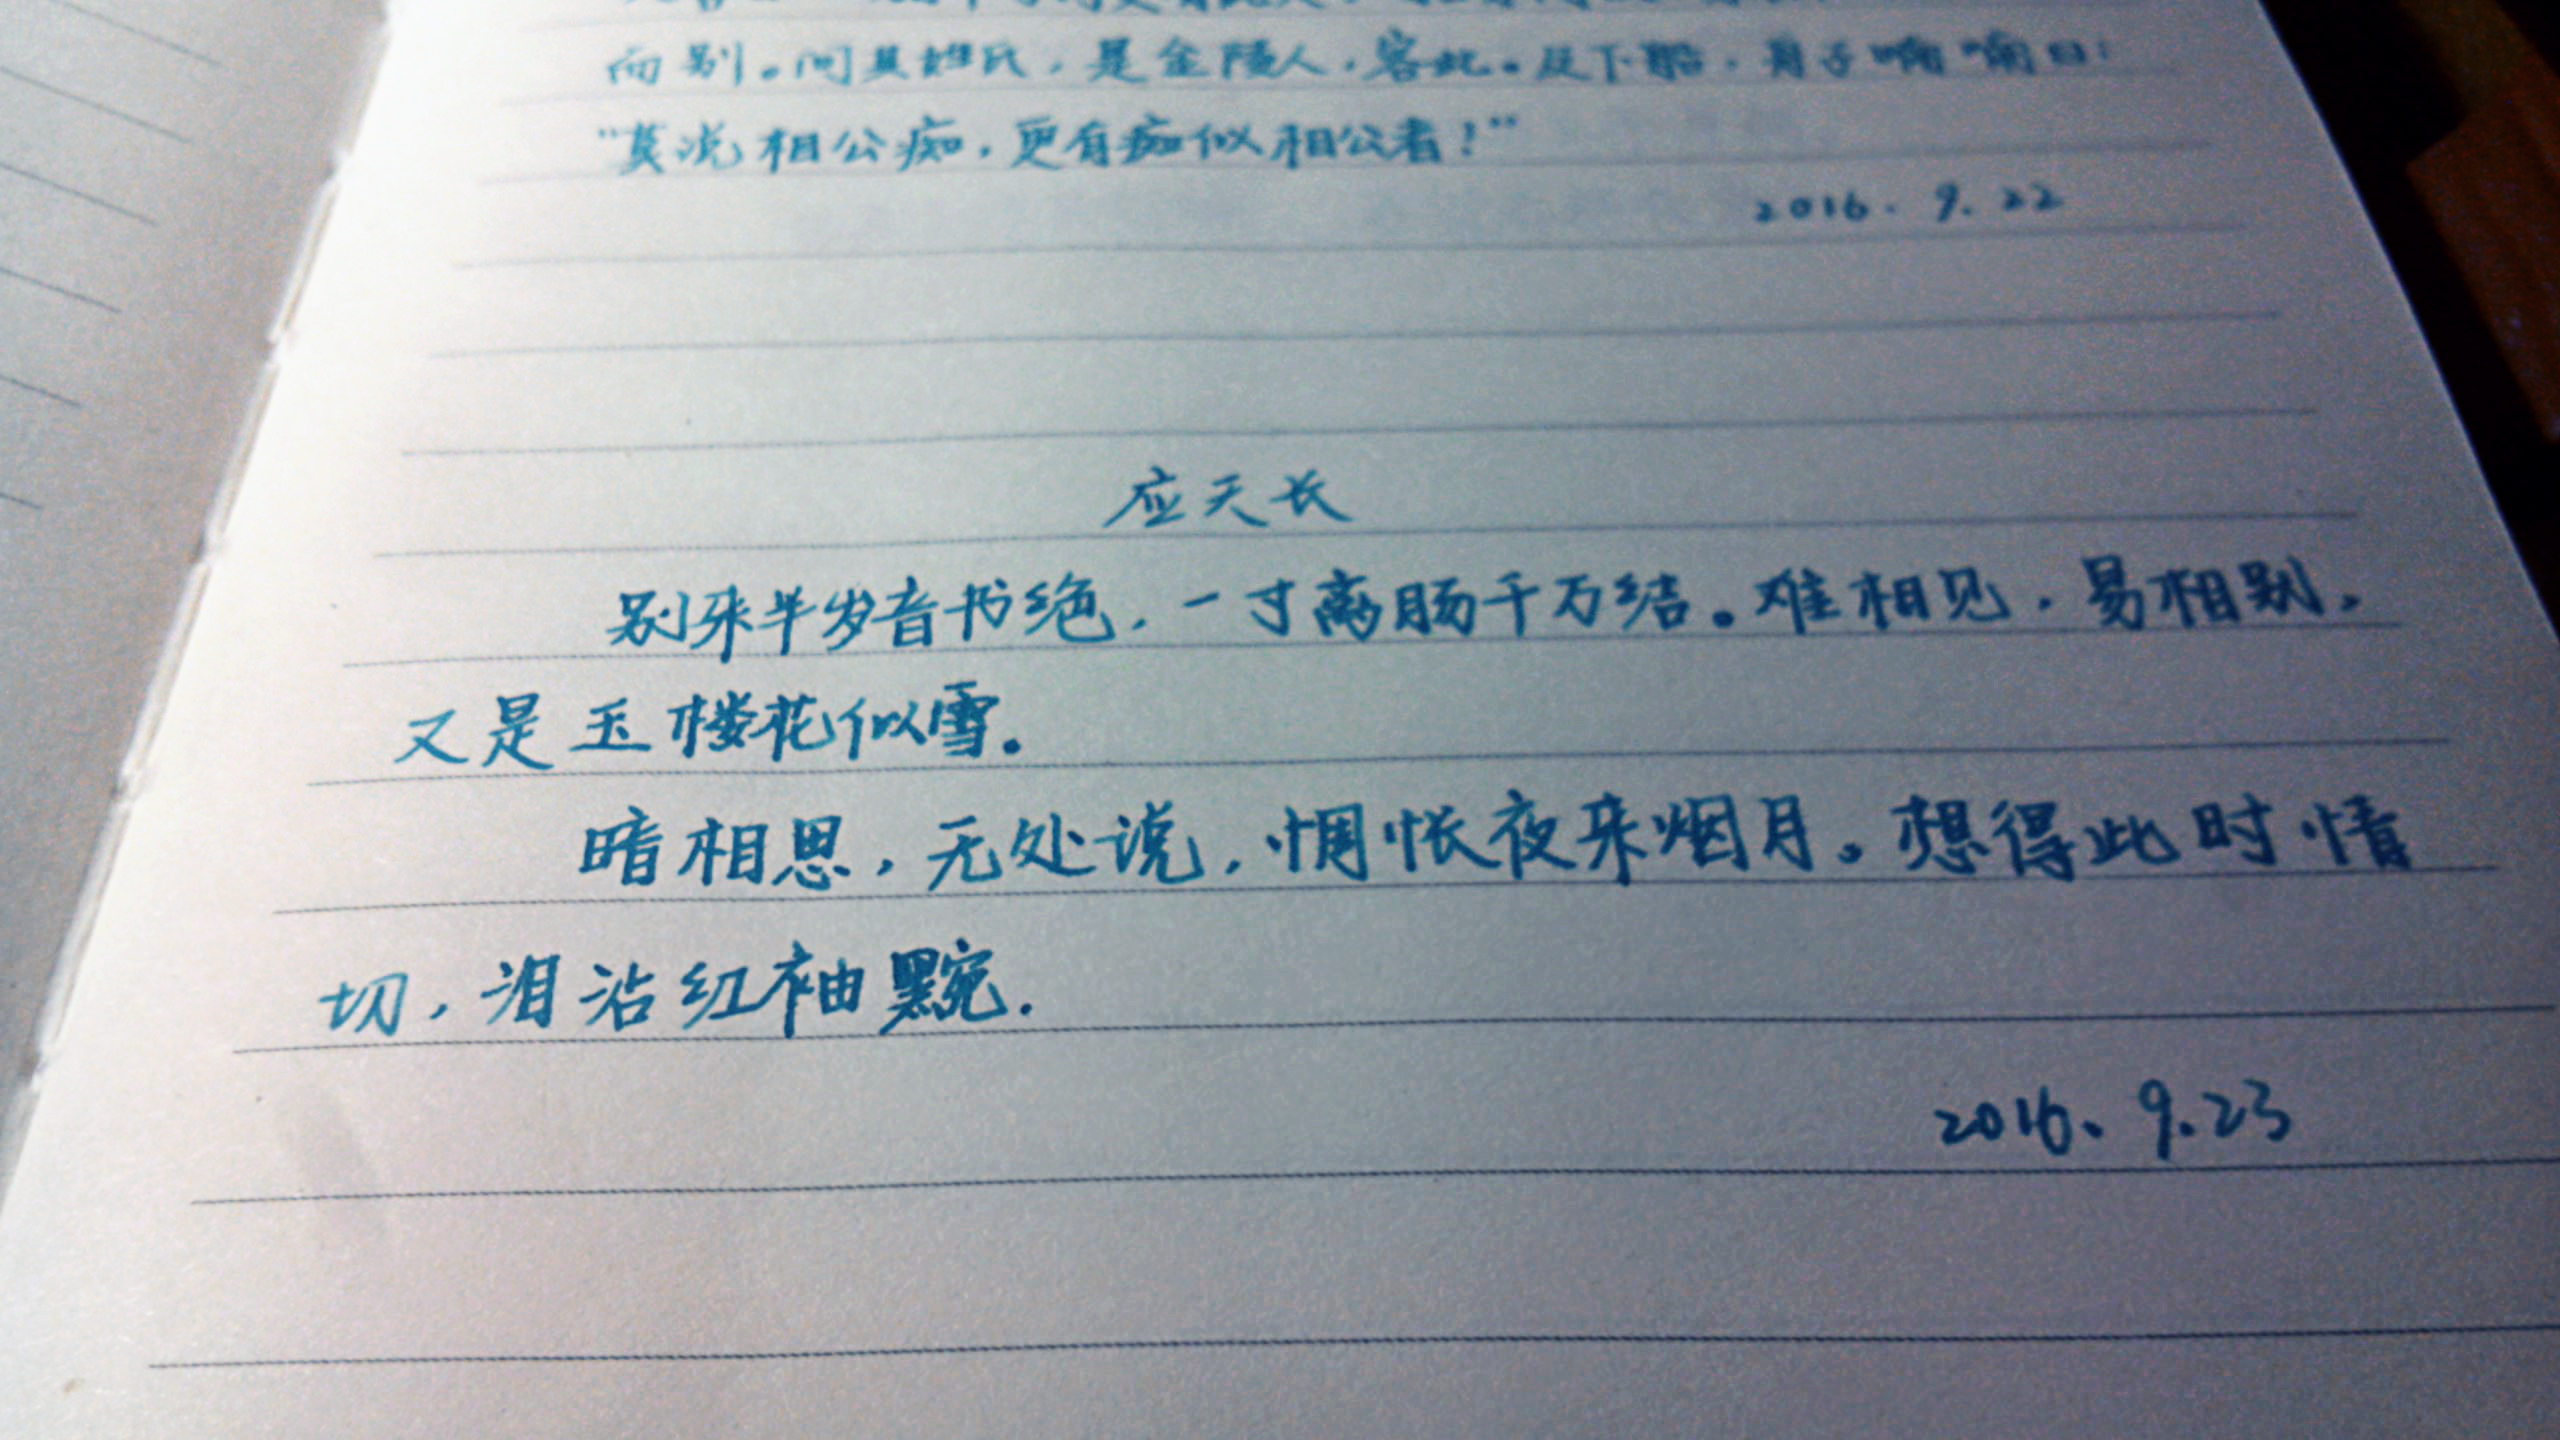 而别。问其姓氏，是金陵人，客此。及下船，舟子喃喃曰：
“莫说相公痴，更有痴似相公者！”
2016. 9. 22
应天长
别来半岁音书绝，一寸离肠千万结。难相见，易相别，
又是玉楼花似雪。
暗相思，无处说，惆怅夜来烟月。想得此时情
切，泪沾红袖黦.
2016. 9. 23